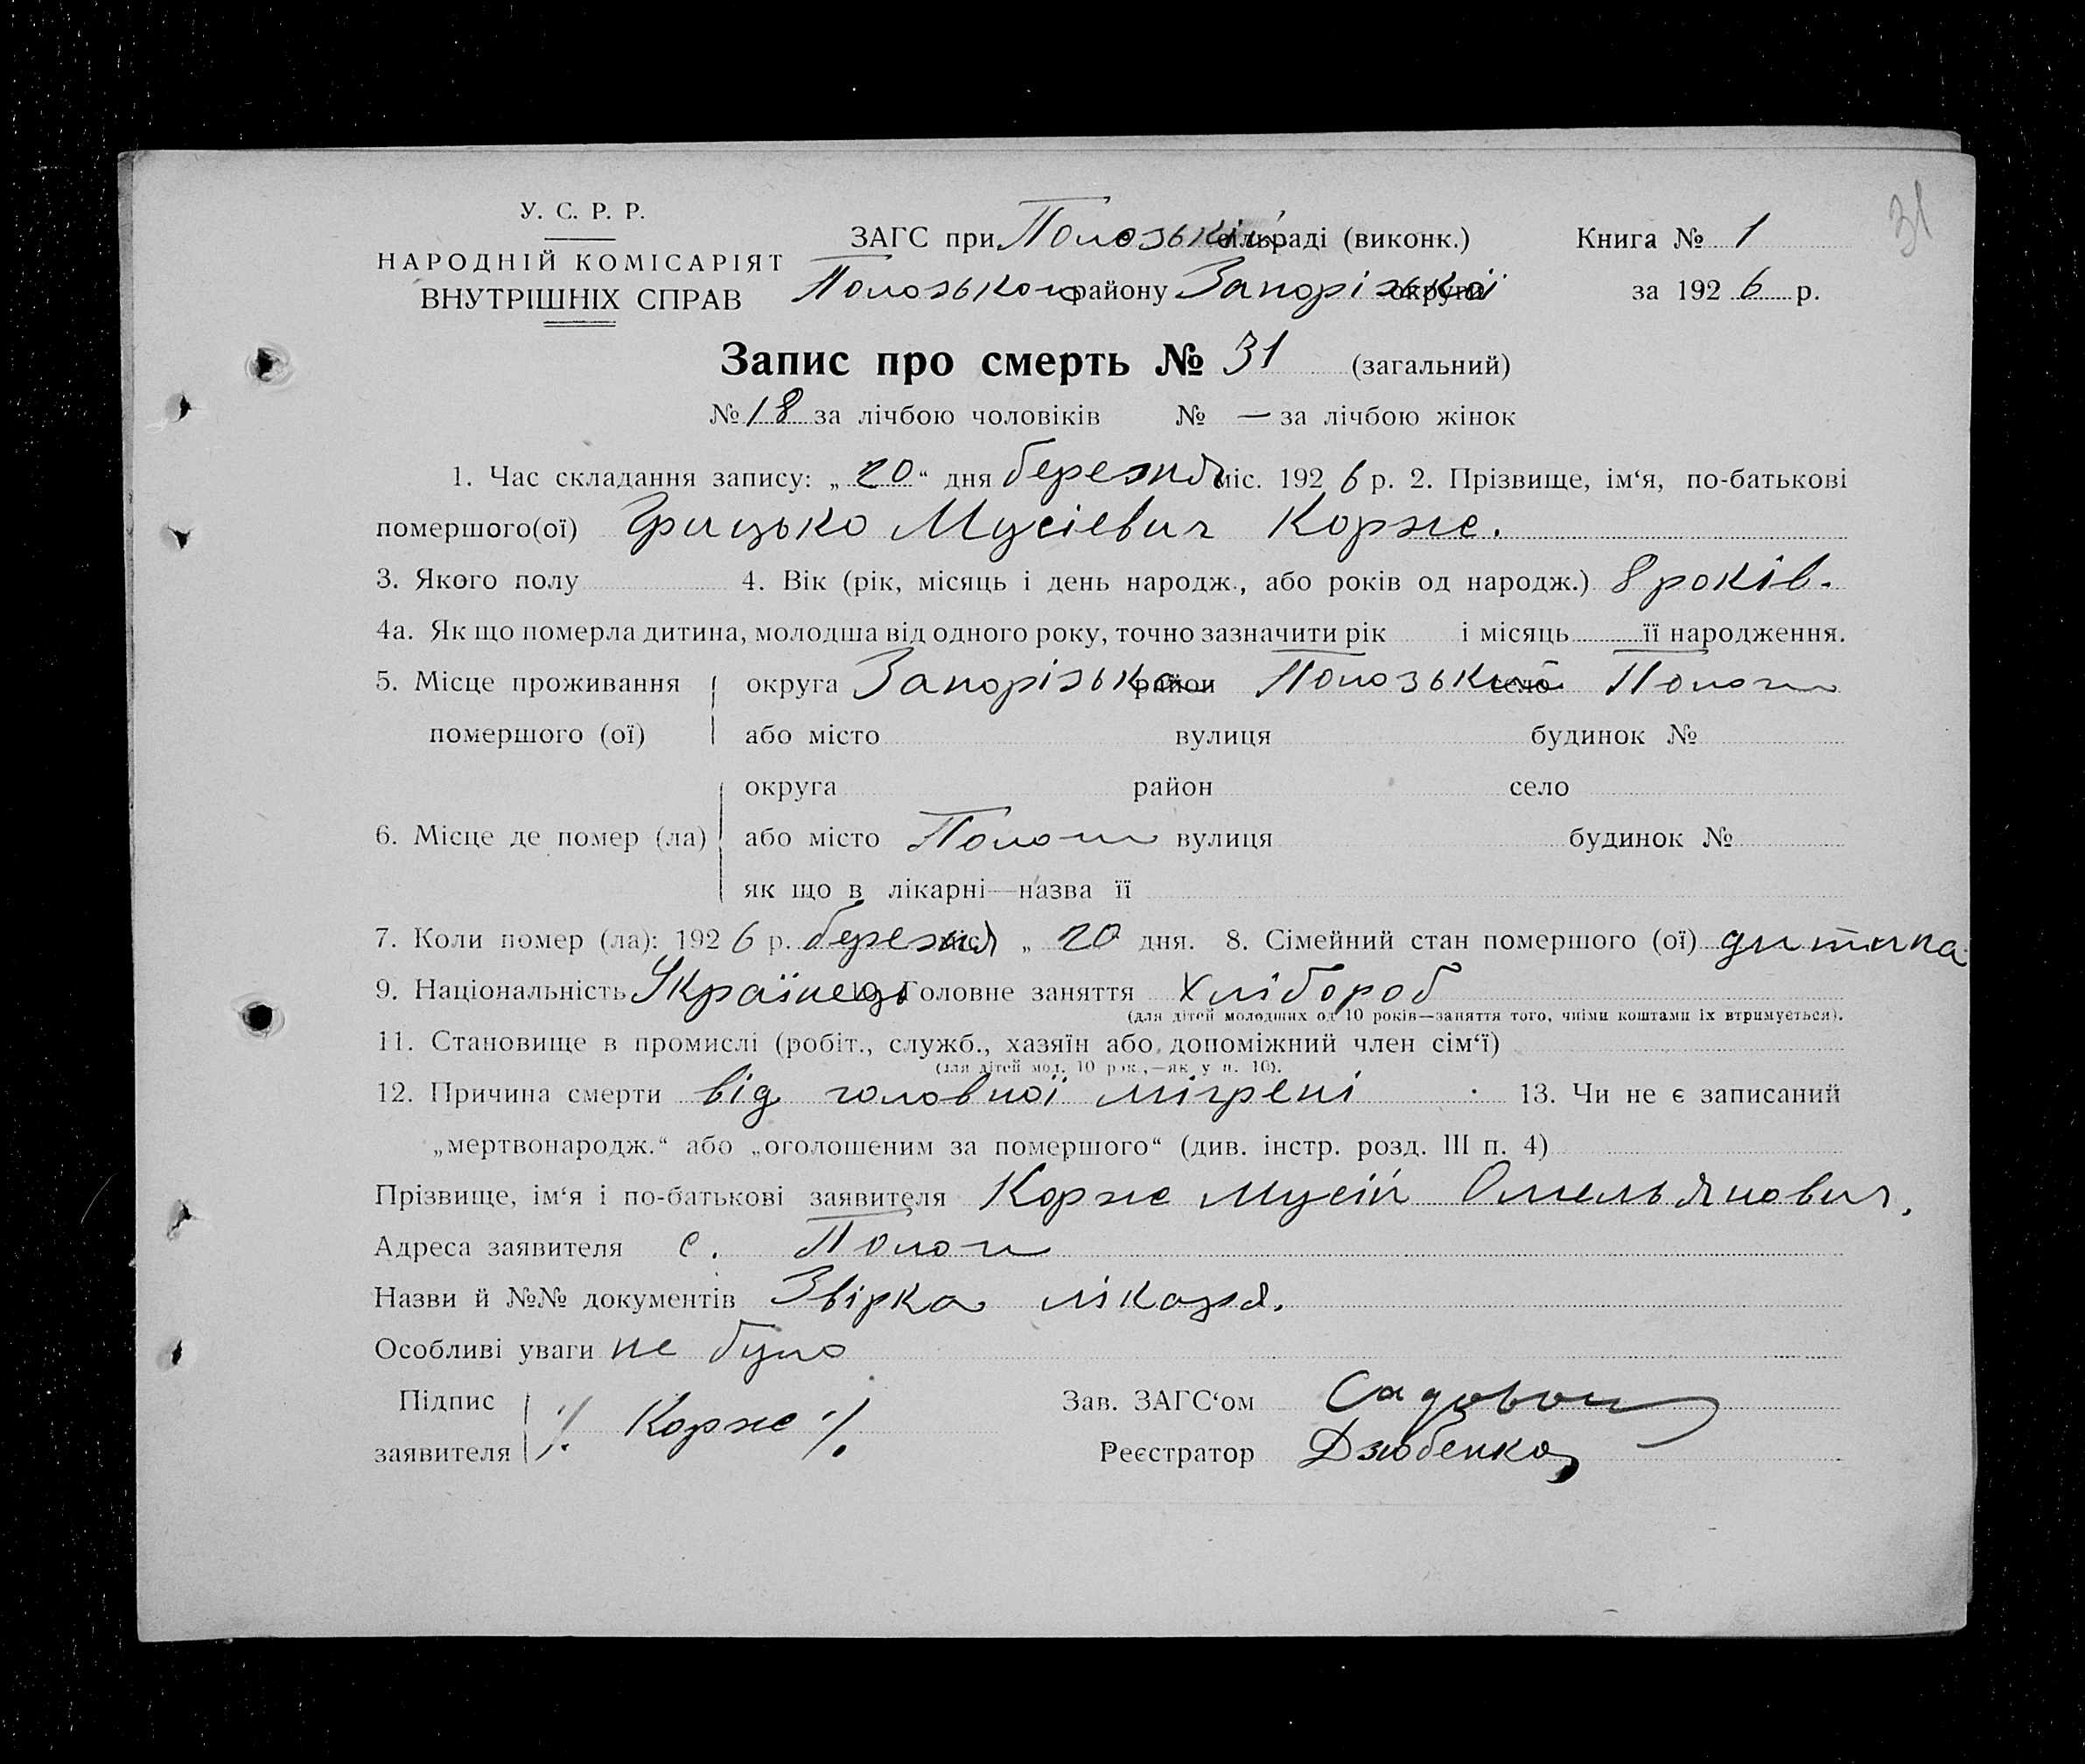 31
У. С. Р. Р.
НАРОДНІЙ КОМІСАРІЯТ
ВНУТРІШНІХ СПРАВ
ЗАГС при Полозькій сільраді (виконк.) Книга № 1
Полозького району Запорізької округи за 1926 р.
Запис про смерть № 31 (загальний)
№ 18 за лічбою чоловіків № — за лічбою жінок
1. Час складання запису: „20“ дня березня міс. 1926 р. 2. Прізвище, ім‘я, по-батькові
помершого(ої) Грицько Мусієвич Корже.
3. Якого полу 4. Вік (рік, місяць і день народж., або років од народж.) 8 років.
4а. Як що померла дитина, молодша від одного року, точно зазначити рік і місяць її народження.
5. Місце проживання округа Запорізька район Полозький село Пологи
помершого (ої) або місто вулиця будинок №
округа район село
6. Місце де помер (ла) або місто Пологи вулиця будинок №
як що в лікарні—назва її
7. Коли помер (ла): 1926 р. березня міс. „20 дня. 8. Сімейний стан помершого (ої) дитина
9. Національність Українець 10. Головне заняття Хлібороб
(для дітей молодших од 10 років—заняття того, чиїми коштами їх втримується).
11. Становище в промислі (робіт., служб., хазяїн або допоміжний член сім‘ї)
(для дітей мол. 10 рок.,—як у п. 10).
12. Причина смерти від головної мігрені 13. Чи не є записаний
„мертвонародж.“ або „оголошеним за помершого“ (див. інстр. розд. III п. 4)
Прізвище, ім‘я і по-батькові заявителя Корже Мусій Омельянович.
Адреса заявителя с. Пологи
Назви й №№ документів Звірка лікаря.
Особливі уваги не було
Підпис Зав. ЗАГС‘ом
заявителя ./. Корже ./. Реєстратор Дзюбенко